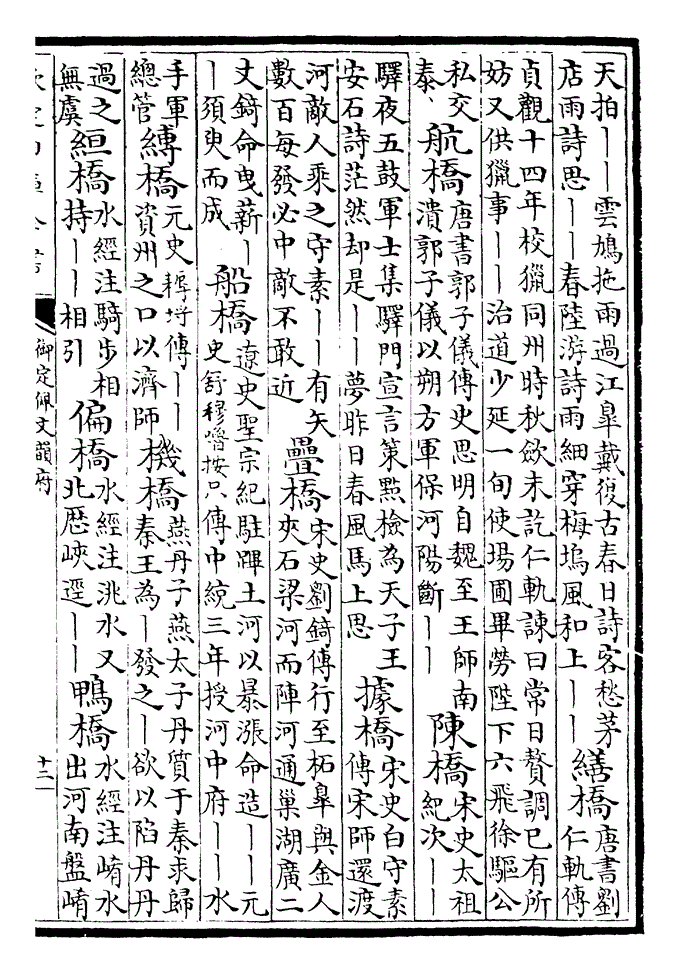 天拍丨丨雲鳩拖雨過江臯戴復古春日詩客愁茅
店雨詩思丨丨春陸游詩雨細穿梅塢風和上丨丨
繕橋
唐書劉
仁軌傳
貞觀十四年校獵同州時秋斂未訖仁軌諫曰常日贅調已有所
妨又供獵事丨丨治道少延一旬使場圃畢勞陛下六飛徐驅公
私交
泰、
航橋
唐書郭子儀傳史思明自魏至王師南
潰郭子儀以朔方軍保河陽斷丨丨
陳橋
宋史太祖
紀次丨丨
驛夜五鼓軍士集驛門宣言策點檢為天子王
安石詩茫然却是丨丨夢昨日春風馬上思
據橋
宋史白守素
傳宋師還渡
河敵人乘之守素丨丨有矢
數百每發必中敵不敢近
疊橋
宋史劉錡傳行至柘臯與金人
夾石梁河而陣河通巢湖廣二
丈錡命曳薪丨
丨須臾而成
船橋
遼史聖宗紀駐蹕土河以暴漲命造丨丨元
史舒穆嚕按只傳中統三年授河中府丨丨水
手軍
總管
縛橋
元史埒傳丨丨
資州之口以濟師
機橋
燕丹子燕太子丹質于秦求歸
秦王為丨發之丨欲以陷丹丹
過之
無虞
絙橋
水經注騎步相
持丨丨相引
偏橋
水經注洮水又
北歷峽逕丨丨
鴨橋
水經注崤水
出河南盤崤
御定佩文韻府